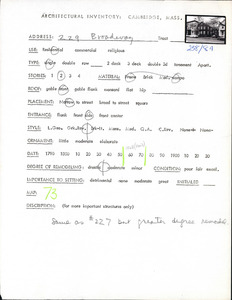 ARCHITECTURAL INVENTORY: CAMBRIDGE, MASS.
ADDRESS: 229 Broadway Street
258/89
USE: residential commercial religious
TYPE: single double row 2 deck 3 deck double 3d tenement Apart.
STORIES: 1 2 3 4 MATERIAL: frame brick stone
ROOF: gable front gable flank mansard flat hip
PLACEMENT: Narrow to street broad to street square
ENTRANCE: flank front side front center
STYLE: Ital. Mans. Q.A.
ORNAMENT: little moderate elaborate
DATE: 1790 1800 10 20 30 40 50 60 70 80 90 1900 10 20 30
DEGREE OF REMODELING: drastic moderate minor CONDITION: poor fair excel.
IMPORTANCE TO SETTING: detrimental some moderate great INITIALED
MAP: 73
DESCRIPTION: (for more important structures only)
Same as #227 but greater degree remodel.